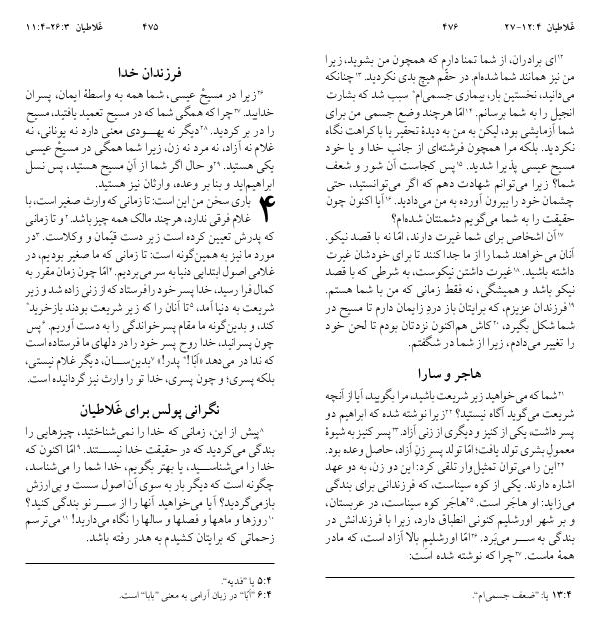 غَلاطیان ۲۶:۳-۱۱:۴
۴۷۵
فرزندان خدا
۲۶زیرا در مسیحْ عیسی، شما همه به واسطۀ ایمان، پسران
خدایید. ۲۷چرا که همگی شما که در مسیح تعمید یافتید، مسیح
را در بر کردید. ۲۸دیگر نه یهودی معنی دارد نه یونانی، نه
غلام نه آزاد، نه مرد نه زن، زیرا شما همگی در مسیحْ عیسی
یکی هستید. ۲۹و حال اگر شما از آنِ مسیح هستید، پس نسل
ابراهیم‌اید و بنا بر وعده، وارثان نیز هستید.
۴ باری سخن من این است: تا زمانی که وارث صغیر است، با
غلام فرقی ندارد، هرچند مالک همه چیز باشد. ۲و تا زمانی
که پدرش تعیین کرده است زیر دست قیّمان و وکلاست. ۳در
مورد ما نیز به همین‌گونه است: تا زمانی که ما صغیر بودیم، در
غلامی اصول ابتدایی دنیا به سر می‌بردیم. ۴امّا چون زمان مقرر به
کمال فرا رسید، خدا پسر خود را فرستاد که از زنی زاده شد و زیر
شریعت به دنیا آمد، ۵تا آنان را که زیر شریعت بودند بازخرید*
کند، و بدین‌گونه ما مقام پسرخواندگی را به دست آوریم. ۶پس
چون پسرانید، خدا روح پسر خود را در دلهای ما فرستاده است
که ندا در می‌دهد «اَبّا!* پدر!» ۷بدین‌سان، دیگر غلام نیستی،
بلکه پسری؛ و چون پسری، خدا تو را وارث نیز گردانیده است.
نگرانی پولس برای غَلاطیان
۸پیش از این، زمانی که خدا را نمی‌شناختید، چیزهایی را
بندگی می‌کردید که در حقیقت خدا نیستند. ۹امّا اکنون که
خدا را می‌شناسید، یا بهتر بگویم، خدا شما را می‌شناسد،
چگونه است که دیگر بار به سوی آن اصول سست و بی‌ارزش
بازمی‌گردید؟ آیا می‌خواهید آنها را از سر نو بندگی کنید؟
۱۰روزها و ماهها و فصلها و سالها را نگاه می‌دارید! ۱۱می‌ترسم
زحماتی که برایتان کشیدم به هدر رفته باشد.
۵:۴ یا "فدیه".
۶:۴ "اَبّا" در زبان آرامی به معنی "بابا" است.
غَلاطیان ۱۲:۴-۲۷
۴۷۶
۱۲ای برادران، از شما تمنا دارم که همچون من بشوید، زیرا
من نیز همانند شما شده‌ام. در حقّم هیچ بدی نکردید. ۱۳چنانکه
می‌دانید، نخستین بار، بیماری جسمی‌ام* سبب شد که بشارت
انجیل را به شما برسانم. ۱۴امّا هرچند وضع جسمی من برای
شما آزمایشی بود، لیکن به من به دیدۀ تحقیر یا با کراهت نگاه
نکردید. بلکه مرا همچون فرشته‌ای از جانب خدا و یا خود
مسیح عیسی پذیرا شدید. ۱۵پس کجاست آن شور و شعف
شما؟ زیرا می‌توانم شهادت دهم که اگر می‌توانستید، حتی
چشمان خود را بیرون آورده به من می‌دادید. ۱۶آیا اکنون چون
حقیقت را به شما می‌گویم دشمنتان شده‌ام؟
۱۷آن اشخاص برای شما غیرت دارند، امّا نه با قصد نیکو.
آنان می‌خواهند شما را از ما جدا کنند تا برای خودشان غیرت
داشته باشید. ۱۸غیرت داشتن نیکوست، به شرطی که با قصد
نیکو باشد و همیشگی، نه فقط زمانی که من با شما هستم.
۱۹فرزندان عزیزم، که برایتان باز درد زایمان دارم تا مسیح در
شما شکل بگیرد، ۲۰کاش هم‌اکنون نزدتان بودم تا لحن خود
را تغییر می‌دادم، زیرا از شما در شگفتم.
هاجر و سارا
۲۱شما که می‌خواهید زیر شریعت باشید، مرا بگویید، آیا از آنچه
شریعت می‌گوید آگاه نیستید؟ ۲۲زیرا نوشته شده که ابراهیم دو
پسر داشت، یکی از کنیز و دیگری از زنی آزاد. ۲۳پسر کنیز به شیوۀ
معمولِ بشری تولد یافت؛ امّا تولد پسرِ زنِ آزاد، حاصل وعده بود.
۲۴این را می‌توان تمثیل‌وار تلقی کرد: این دو زن، به دو عهد
اشاره دارند. یکی از کوه سیناست، که فرزندانی برای بندگی
می‌زاید: او هاجَر است. ۲۵هاجَر کوه سیناست، در عربستان،
و بر شهر اورشلیم کنونی انطباق دارد، زیرا با فرزندانش در
بندگی به سر می‌بَرد. ۲۶امّا اورشلیمِ بالا آزاد است، که مادر
همۀ ماست. ۲۷چرا که نوشته شده است:
۱۳:۴ یا: "ضعف جسمی‌ام".